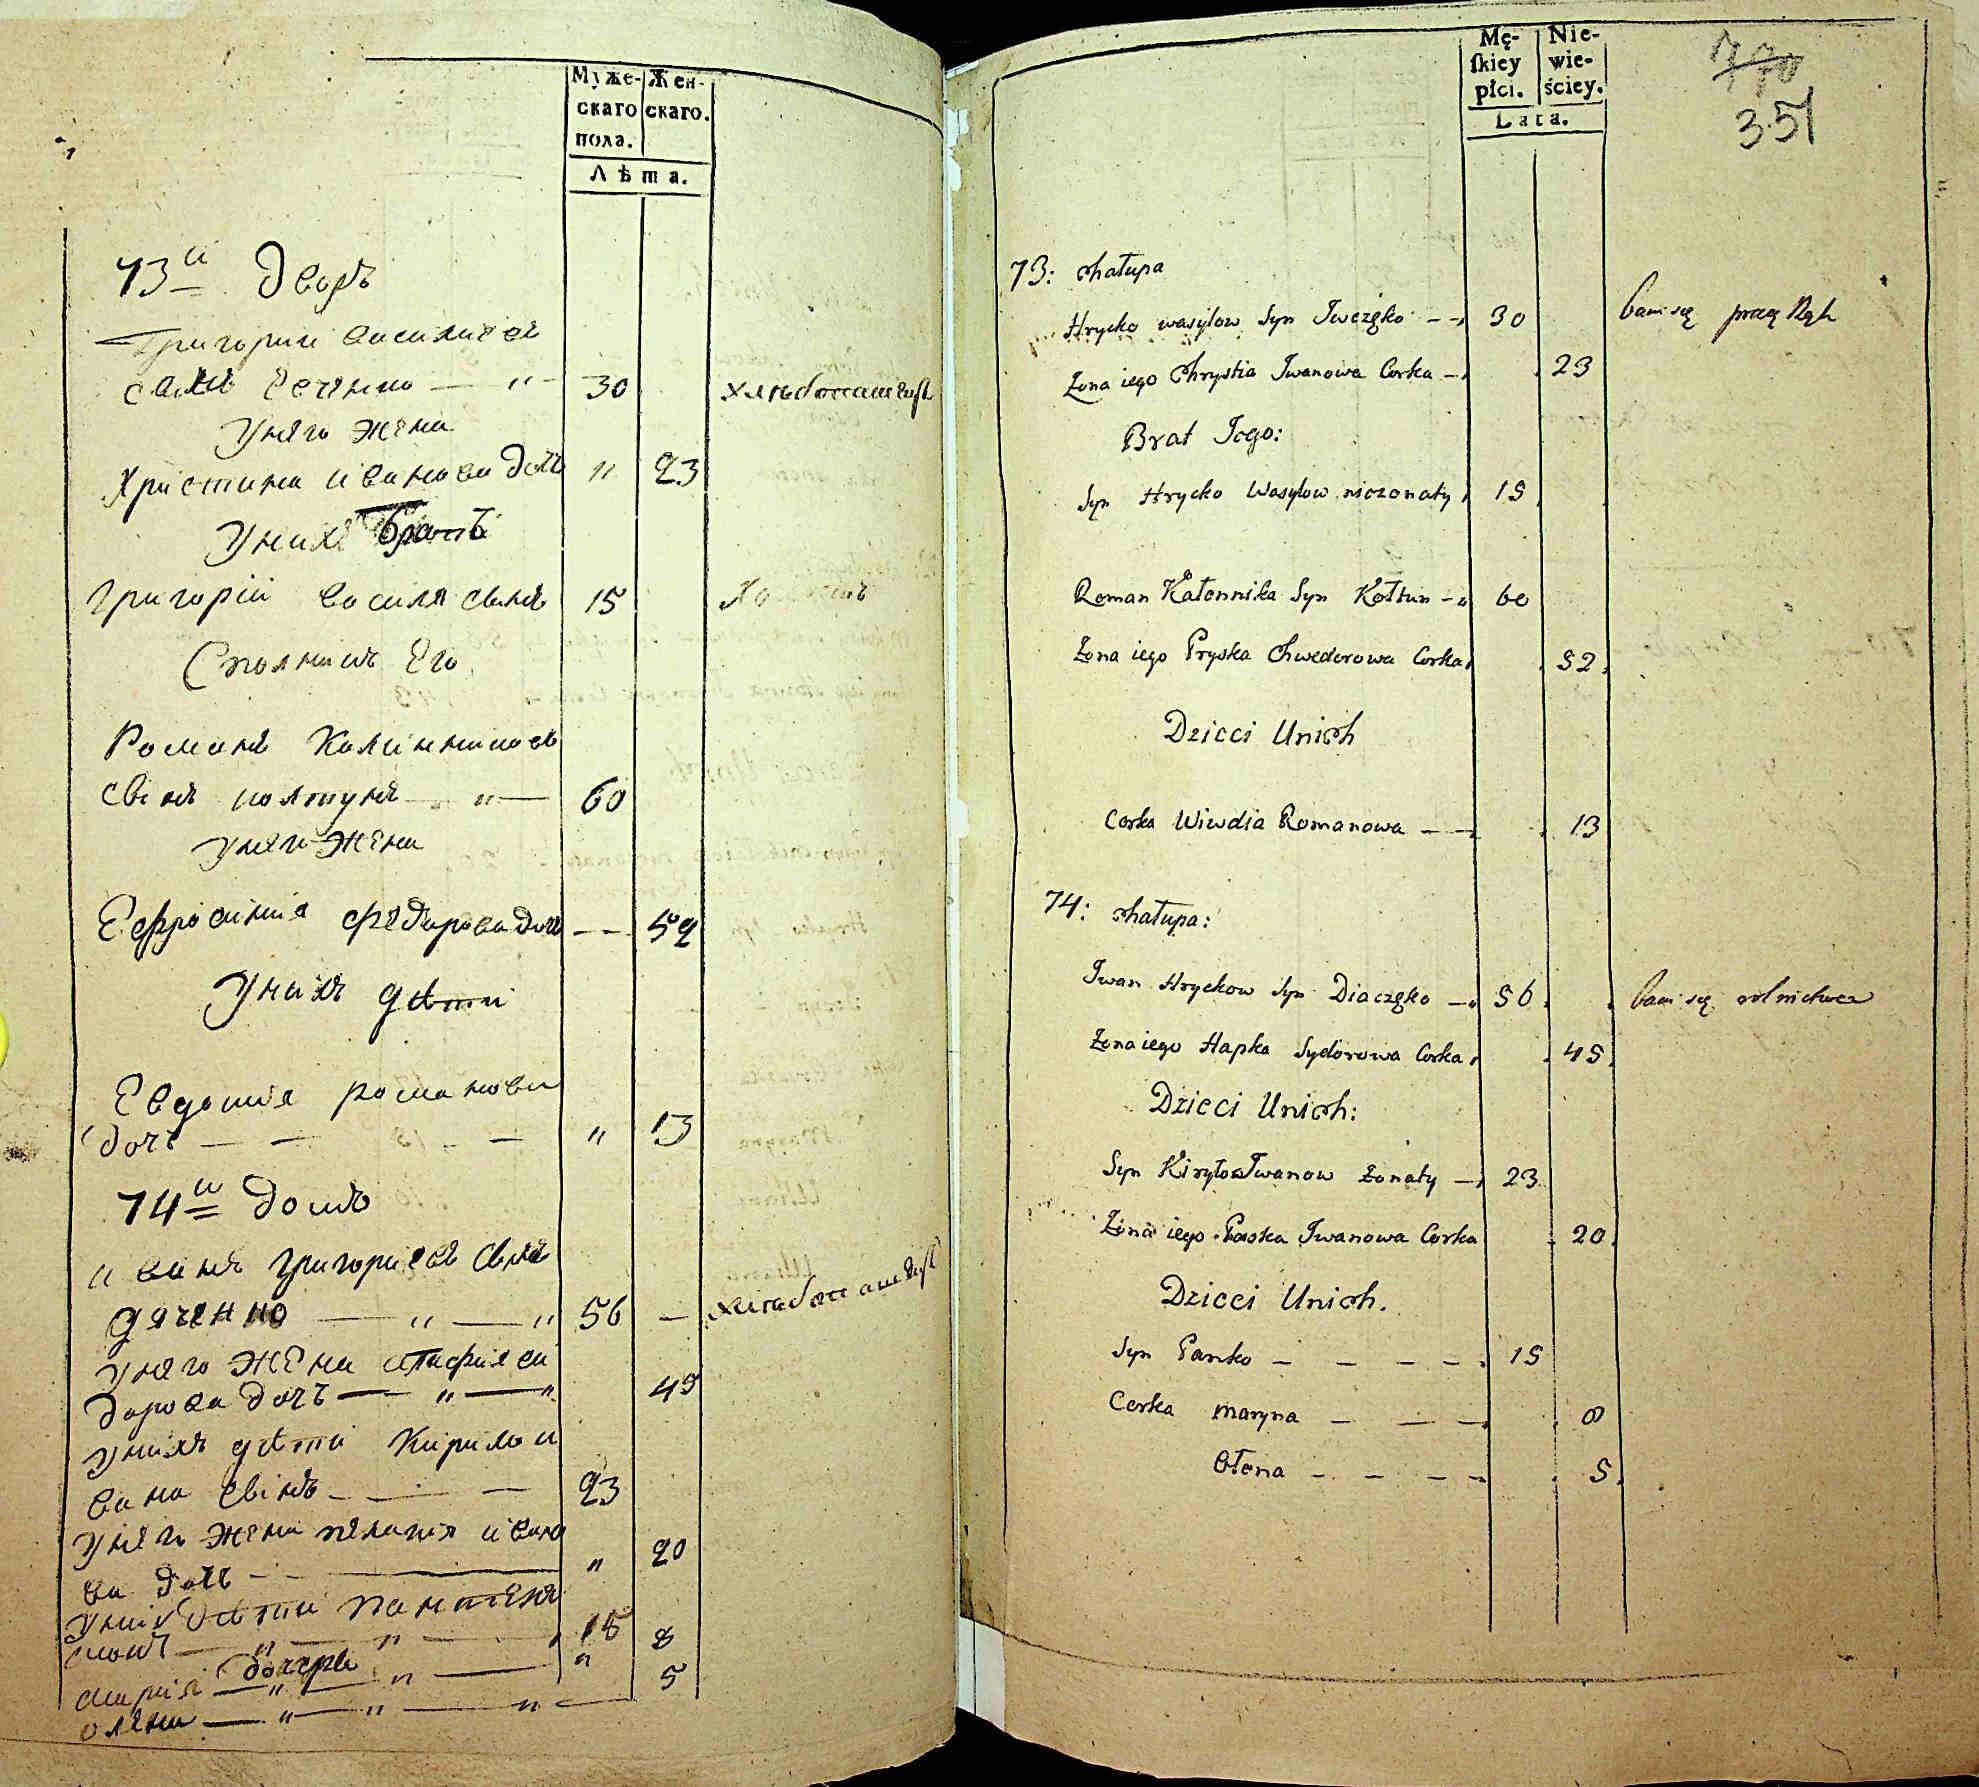 Муже-
скаго
пола.
Жен-
скаго.
Лѣта.
73й дворъ
Григорий василиевъ
30
У него жена
Христина иванова дочь " 23
У нихъ братъ
Григорій василя синъ 15
Его
Романъ
синъ колтунъ " 60
У него жена
Ефросиния федорова дочь — — 52
У нихъ дѣти
Евдокия романова
дочъ — — — " 13
74й домъ
иванъ григориевъ синъ
дяченко — " — " 56 — хлѣбопашецъ
у него жена
дорова дочъ — " — " 45
у нихъ дѣти Кирило и
вана синъ — — — 23
у него жена пелагия ивано
ва дочъ — " 20
у нихъ дѣти
— " — " — 15 8
дочери
мария — " — " — " 5
олена — " — " — "
Mę-
skiey
płci.
Nie-
wie-
ściey.
Lata.
770
351
73: Chałupa
Hrycko wasylow Syn Iwczęko — 30 bawi się pracą
Żona iego Chrystia Iwanowa Corka — 23
Brat Jego:
Syn Hrycko Wasylow nieżonaty 15
Roman Kalennika Syn Kołtun — 60
Żona iego Pryska Chwedorowa Corka 52
Dzieci Unich
Corka Wiwdia Romanowa — — 13
74: Chałupa:
Iwan Hryckow Syn Diaczęko — 56 bawi się rolnictwem
Żona iego Hapka Sydorowa Corka 45
Dzieci Unich:
Syn Kiryło Iwanow żonaty — 23
Żona iego Paska Iwanowa Corka 20
Dzieci Unich.
Syn Panko — — — — 15
Corka Maryna — — — 8
Ołena — — — — 5